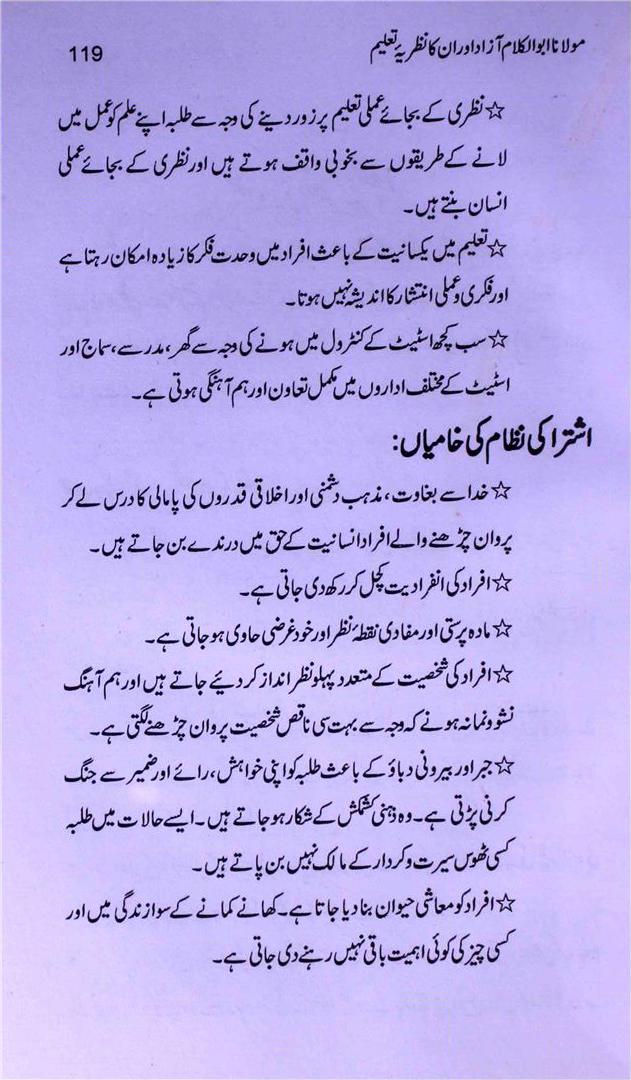 مولانا ابوالکلام آزاد اور ان کا نظریۂ تعلیم 119
☆ نظری کے بجائے عملی تعلیم پر زور دینے کی وجہ سے طلبہ اپنے علم کو عمل میں
لانے کے طریقوں سے بخوبی واقف ہوتے ہیں اور نظری کے بجائے عملی
انسان بنتے ہیں۔
☆ تعلیم میں یکسانیت کے باعث افراد میں وحدت فکر کا زیادہ امکان رہتا ہے
اور فکری و عملی انتشار کا اندیشہ نہیں ہوتا۔
☆ سب کچھ اسٹیٹ کے کنٹرول میں ہونے کی وجہ سے گھر، مدرسے، سماج اور
اسٹیٹ کے مختلف اداروں میں مکمل تعاون اور ہم آہنگی ہوتی ہے۔
اشتراکی نظام کی خامیاں:
☆ خدا سے بغاوت، مذہب دشمنی اور اخلاقی قدروں کی پامالی کا درس لے کر
پروان چڑھنے والے افراد انسانیت کے حق میں درندے بن جاتے ہیں۔
☆ افراد کی انفرادیت کچل کر رکھ دی جاتی ہے۔
☆ مادہ پرستی اور مفادی نقطۂ نظر اور خود غرضی حاوی ہو جاتی ہے۔
☆ افراد کی شخصیت کے متعدد پہلو نظر انداز کر دیئے جاتے ہیں اور ہم آہنگ
نشوونما نہ ہونے کہ وجہ سے بہت سی ناقص شخصیت پروان چڑھنے لگتی ہے۔
☆ جبر اور بیرونی دباؤ کے باعث طلبہ کو اپنی خواہش، رائے اور ضمیر سے جنگ
کرنی پڑتی ہے۔ وہ ذہنی کشمکش کے شکار ہو جاتے ہیں۔ ایسے حالات میں طلبہ
کسی ٹھوس سیرت و کردار کے مالک نہیں بن پاتے ہیں۔
☆ افراد کو معاشی حیوان بنا دیا جاتا ہے۔ کھانے کمانے کے سوا زندگی میں اور
کسی چیز کی کوئی اہمیت باقی نہیں رہنے دی جاتی ہے۔